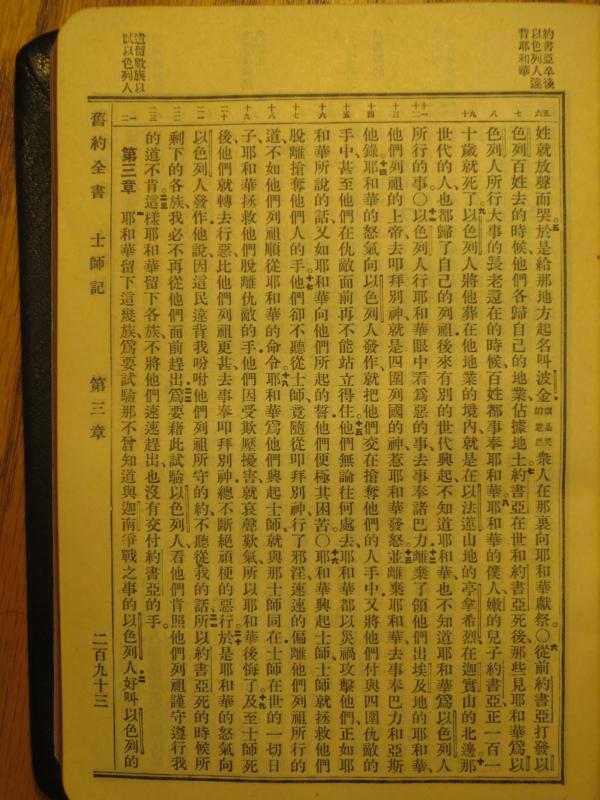 約書亞卒後
以色列人違
背耶和華
遺留數族以
試以色列人
姓就放聲而哭於是給那地方起名叫波金就是哭的意思衆人在那裏向耶和華獻祭○從前約書亞打發以
色列百姓去的時候他們各歸自己的地業佔據地土約書亞在世和約書亞死後、那些見耶和華爲以
色列人所行大事的長老還在的時候百姓都事奉耶和華耶和華的僕人嫩的兒子約書亞正一百一
十歲就死了以色列人將他葬在他地業的境內就是在以法蓮山地的亭拿希烈在迦實山的北邊那
世代的人也都歸了自己的列祖後來有別的世代興起不知道耶和華也不知道耶和華爲以色列人
所行的事○以色列人行耶和華眼中看爲惡的事去事奉諸巴力離棄了領他們出埃及地的耶和華、
他們列祖的上帝去叩拜別神就是四圍列國的神惹耶和華發怒並離棄耶和華去事奉巴力和亞斯
他錄耶和華的怒氣向以色列人發作就把他們交在搶奪他們的人手中又將他們付與四圍仇敵的
手中甚至他們在仇敵面前再不能站立得住他們無論往何處去耶和華都以災禍攻擊他們正如耶
和華所說的話又如耶和華向他們所起的誓他們便極其困苦○耶和華興起士師士師就拯救他們
脫離搶奪他們人的手他們卻不聽從士師竟隨從叩拜別神行了邪淫速速的偏離他們列祖所行的
道不如他們列祖順從耶和華的命令耶和華爲他們興起士師就與那士師同在士師在世的一切日
子耶和華拯救他們脫離仇敵的手他們因受欺壓擾害就哀聲歎氣所以耶和華後悔了及至士師死
後他們就轉去行惡比他們列祖更甚去事奉叩拜別神總不斷絕頑梗的惡行於是耶和華的怒氣向
以色列人發作他說因這民違背我吩咐他們列祖所守的約不聽從我的話所以約書亞死的時候所
剩下的各族我必不再從他們面前趕出爲要藉此試驗以色列人看他們肯照他們列祖謹守遵行我
的道不肯這樣耶和華留下各族不將他們速速趕出也沒有交付約書亞的手。
第三章 耶和華留下這幾族爲要試驗那不曾知道與迦南爭戰之事的以色列人好叫以色列的
舊約全書 士師記 第三章 二百九十三